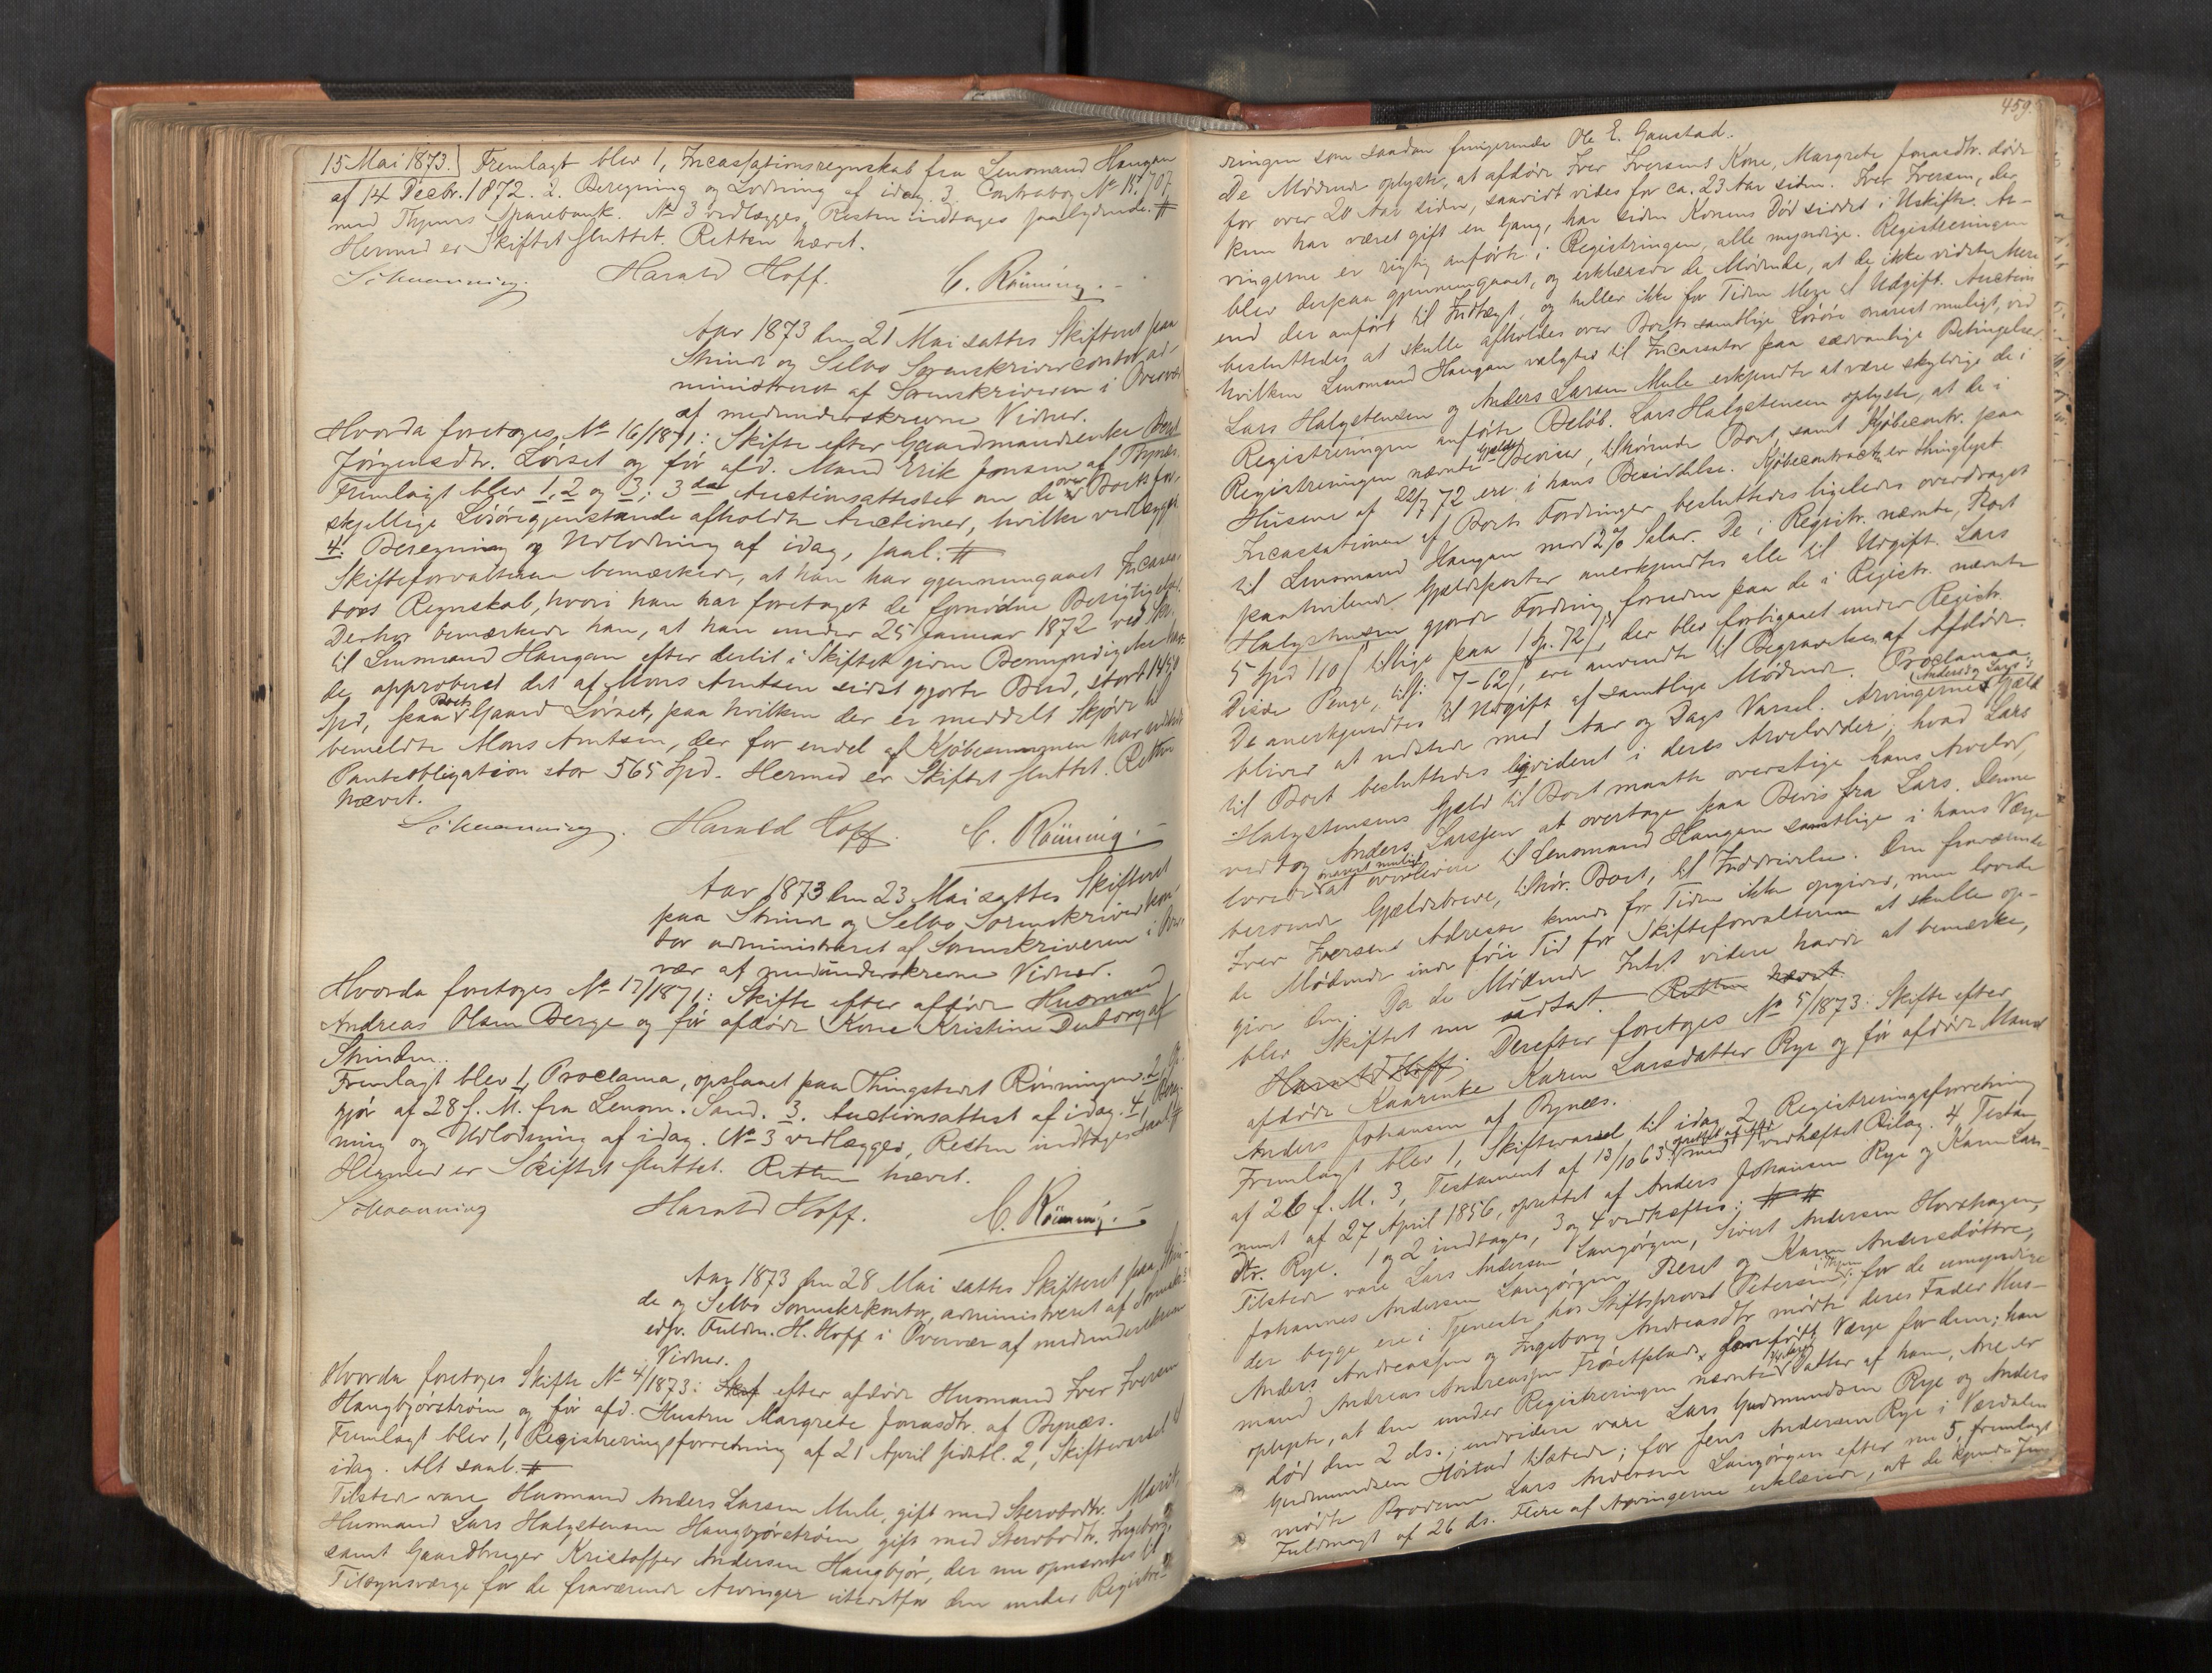 15 Mai 1873.] Fremlagt blev 1, Incassationsregnskab fra Lensmand Haugan
af 14 Decbr. 1872. 2. Beregning og Lodning af idag. 3. Contrabog No 15.707
med Thjems Sparebank. No 3 vedlægges, Resten indtages saalydende. #
Hermed er Skiftet sluttet. Retten hævet.
Schwenning. Harald Hoff. C. Rönning.
Aar 1873 den 21 Mai sattes Skifteret paa
Strinde og Selbo Sorenskrivercontor ad-
ministreret af Sorenskriveren i Overvær
af medunderskrevne Vidner.
Hvorda foretoges No 16/1871: Skifte efter Gaardmandsenke Beret
Jörgensdtr. Lörset og för afd. Mand Erik Jonsen af Bynæs.
Fremlagt blev 1, 2 og 3; 3de Auctionsattester om de over Boets for-
skjellige Lösöregjenstande afholdte Auctioner, hvilke vedlægges
4. Beregning og Udlodning af idag, saal: #
Skifteforvalteren bemærkede, at han har gjennemgaaet Incassa-
tors Regnskab, hvori han har foretaget de fornödne Berigtigelser.
Derhos bemærkede han, at han under 25 Januar 1872 ved Skr.
til Lensmand Haugan efter dertil i Skiftet given Bemyndigelse har
de approberet det af Mons Arntsen sidst gjorte Bud, stort 1450
Spd, paa Boets Gaard Lörset, paa hvilken der er meddelt Skjöde til
bemeldte Mons Arntsen, der for endel af Kjöbesummen har udstedt
Panteobligation stor 565 Spd. Hermed er Skiftet sluttet. Retten
hævet.
Schwenning. Harald Hoff. C. Rönning.
Aar 1873 den 23 Mai sattes Skifteret
paa Strinde og Selbo Sorenskriverkon-
tor administreret af Sorenskriveren i Over-
vær af medunderskrevne Vidner.
Hvorda foretoges No 17/1871: Skifte efter afdöde Husmand
Andreas Olsen Berge og för afdöde Kone Kristine Duborg af
Strinden.
Fremlagt blev 1, Proclama, opslaaet paa Thingstedet Rönningen. 2, Op-
gjör af 28 f. M. fra Lensm. Sand. 3. Auctionsattest af idag. 4, Bereg-
ning og Udlodning af idag. No 3 vedlægges, Resten indtages saal #
Hermed er Skiftet sluttet. Retten hævet.
Schwenning Harald Hoff. C. Rönning.
Aar 1873 den 28 Mai sattes Skifteret paa Strin-
de og Selbo Sorenskrkontor, administreret af Sorenskr
edsv. Fuldm. H. Hoff i Overvær af medunderskrevne
Vidner.
Hvorda foretoges Skifte No 4/1873: Skif efter afdöde Husmand Iver Iversen
Haugbjörströen og för afd. Hustru Margrete Jonasdtr. af Bynæs.
Fremlagt blev 1, Registreringsforretning af 21 April sidstl. 2, Skiftevarsel til
idag. Alt saal. #
Tilstede vare Husmand Anders Larsen Mule, gift med Stervbodtr. Marit,
Husmand Lars Halgstensen Haugbjörströen, gift med Stervbodtr. Ingeborg,
samt Gaardbruger Kristoffer Andersen Haugbjör, der nu opnævntes til
Tilsynsværge for de fraværende Arvinger istedetfor den under Registre-
459.
ringen som saadan fungerende Ole E. Gaustad.
De Mödende oplyste, at afdöde Iver Iversens Kone, Margrete Jonasdtr. döde
for over 20 Aar siden, saavidt vides for ca. 23 Aar siden. Iver Iversen, der
kun har været gift en Gang, har siden Konens Död siddet i Uskifte. Ar-
vingerne er rigtig anförte i Registringen, alle myndige. Registreringen
blev derpaa gjennemgaaet, og erklærede de Mödende, at de ikke vidste Mere
end der anfört til Indtægt, og heller ikke for Tiden Mere til Udgift. Auction
besluttedes at skulle afholdes over Boets samtlige Lösöre snarest muligt, ved
hvilken Lensmand Haugan valgtes til Incassator paa sædvanlige Betingelser.
Lars Halgstensen og Anders Larsen Mule erkjendte at være skyldige de i
Registreringen anförte Belöb. Lars Halgstensen oplyste, at de i
Registreringen nævnte Gjælds Beviser, tilhörende Boet, samt Kjöbecontr. paa
Husene af 22/7 72 ere i hans Besiddelse. Kjöbecontracten er thinglyst.
Incassationen af Boets Fordringer besluttedes ligeledes overdraget
til Lensmand Haugan mod 2% Salær. De i Registr. nævnte, Boet
paahvilende Gjældsposter anerkjendtes alle til Udgift. Lars
Halgstensen gjorde Fordring, foruden paa de i Registr. nævnte
5 Spd 110 ß tillige paa 1 Sp. 72 ß, der blev forbigaaet under Registr.
Disse Penge, tils: 7-62 ß, ere anvendte til Begravelsen af Afdöde.
De anerkjendtes til Udgift af samtlige Mödende. Proclama
bliver at udstede med Aar og Dags Varsel. Arvingernes (Anders og Lars's) Gjæld
til Boet besluttedes liqvideret i deres Arvelodder; hvad Lars
Halgstensens Gjæld til Boet maatte overstige hans Arvelod,
vedtog Anders Larssen at overtage paa Bevis fra Lars. Denne
lovede snarest muligt at overlevere til Lensmand Haugan samtlige i hans Værge
beroende Gjældsbreve, tilhör. Boet, til Inddrivelse. Den fraværende
Iver Iversens Adresse kunde for Tiden ikke opgives, men lovede
de Mödende inde föie Tid for Skifteforvalteren at skulle op-
give den. Da de Mödende Intet videre havde at bemærke,
blev Skiftet nu udsat. Retten hævet.
Harald Hoff. Derefter foretoges No 5/1873: Skifte efter
afdöde Kaarenke Karen Larsdatter Rye og för afdöde Mand
Anders Johansen af Bynæs.
Fremlagt blev 1, Skiftevarsel til idag. 2, Registreringsforretning
af 26 f. M. 3, Testament af 13/10 63 med vedheftet Bilag. 4 Testa-
ment af 27 April 1856, oprettet af Anders Johansen Rye og Karen Lars-
dtr. Rye. 1 og 2 indtages, 3 og 4 vedhæftes: # #
Tilstede vare Lars Andersen Langörgen, Sivert Andersen Hovshagen,
Johannes Andersen Langörgen, Beret og Karen Andersdöttre,
der begge ere i Tjeneste hos Stiftsprovst Petersen i Thjem; for de umyndige
Anders Andreassen og Ingeborg Andreasdtr mödte deres Fader Hus-
mand Andreas Andreassen Frösetplads, som födt Værge for dem; han
oplyste, at den under Registreringen nævnte Datter af ham, Ane er
död den 2 ds.; endvidere vare Lars Gudmundsen Rye og Anders
Gudmundsen Höstad tilstede; for Jens Andersen Rye i Værdalen
mödte Broderen Lars Andersen Langörgen efter nu 5, fremlagt
Fuldmagt af 26 ds. Flere af Arvingerne erklærede, at de kjende